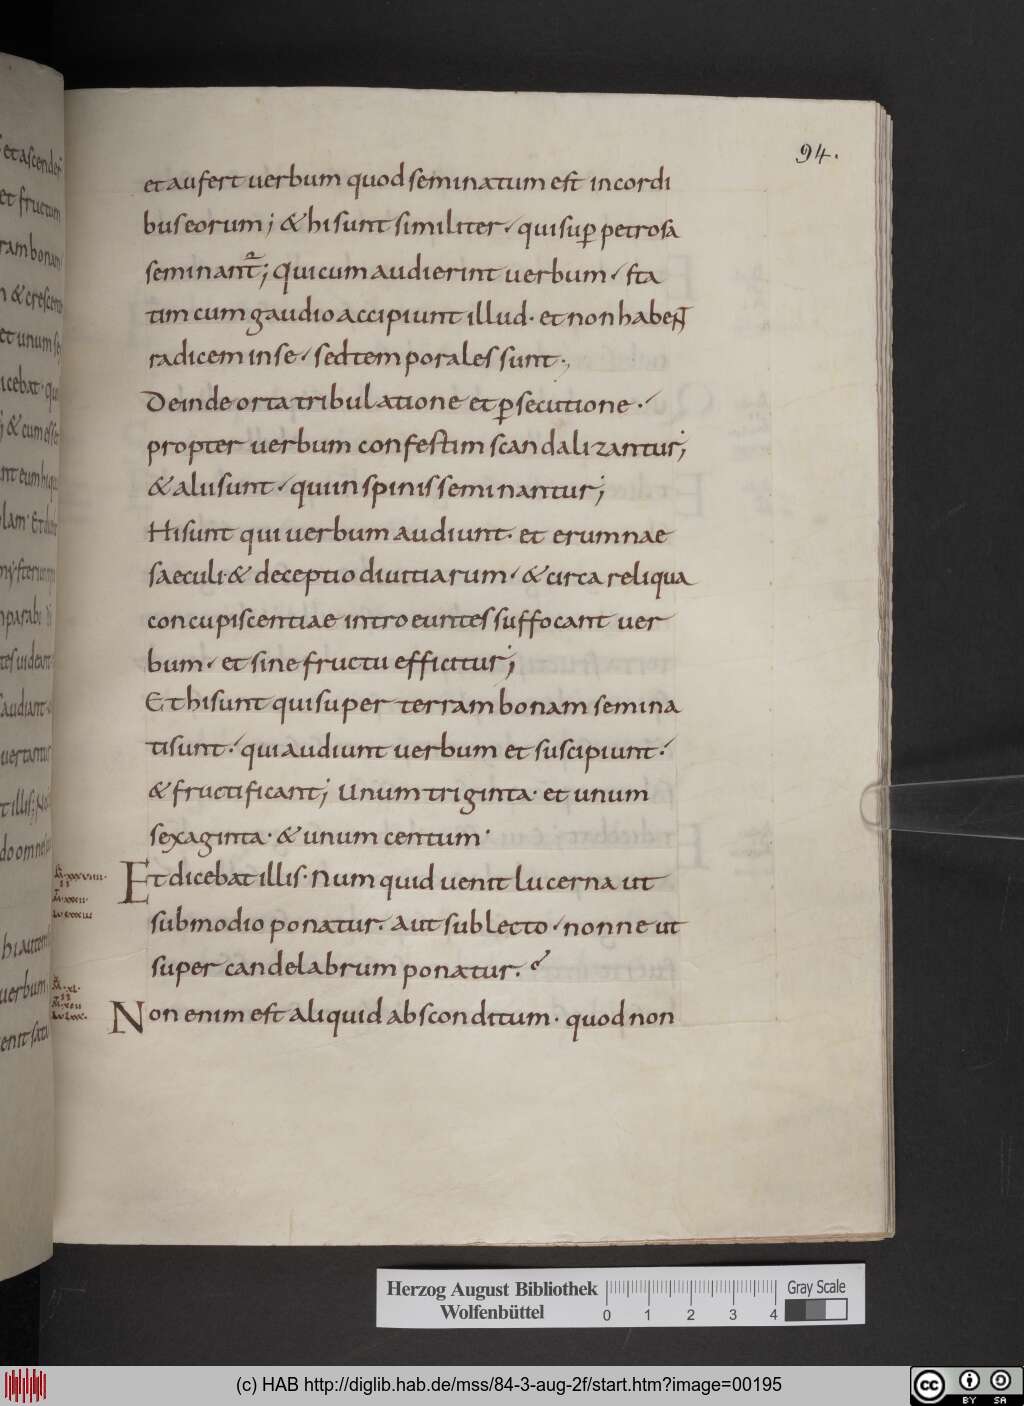 94.
et aufert uerbum quod seminatum est in cordi
bus eorum; & hi sunt similiter, qui sup petrosa
seminant; Qui cum audierint uerbum, sta
tim cum gaudio accipiunt illud. et non habent
radicem in se, sed temporales sunt.,
Deinde orta tribulatione et psecutione.,
propter uerbum confestim scandalizantur;
& alii sunt, qui in spinis seminantur;
Hi sunt qui uerbum audiunt. et erumnae
saeculi. & deceptio diuitiarum, & circa reliqua
concupiscentiae introeuntes suffocant uer
bum, et sine fructu efficitur;
Et hi sunt qui super terram bonam semina
ti sunt, qui audiunt uerbum et suscipiunt,
& fructificant; Unum triginta. et unum
sexaginta. & unum centum.
Et dicebat illis. Numquid uenit lucerna ut
sub modio ponatur. Aut sub lecto, nonne ut
super candelabrum ponatur.
Non enim est aliquid absconditum. quod non
et ascender
et fructum
ram bonam
et unum
icebat. qui
& cum esse
uerbum
Herzog August Bibliothek
Wolfenbüttel
0 1 2 3 4
Gray Scale
(c) HAB http://diglib.hab.de/mss/84-3-aug-2f/start.htm?image=00195
cc BY SA